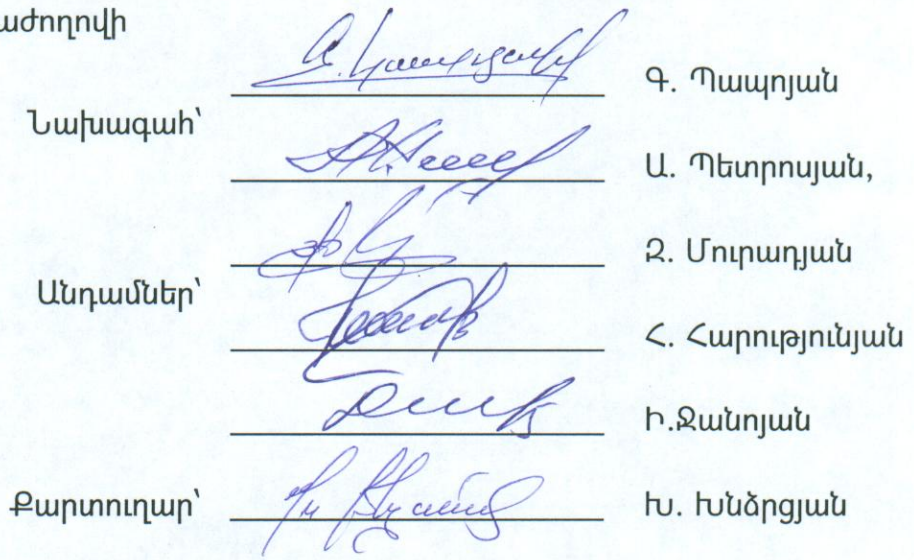 աժողովի
Գ. Պապոյան
Նախագահ՝
Ա. Պետրոսյան,
Զ. Մուրադյան
Անդամներ՝
Հ. Հարությունյան
Ի.Ջանոյան
Քարտուղար՝ Խ. Խնձրցյան